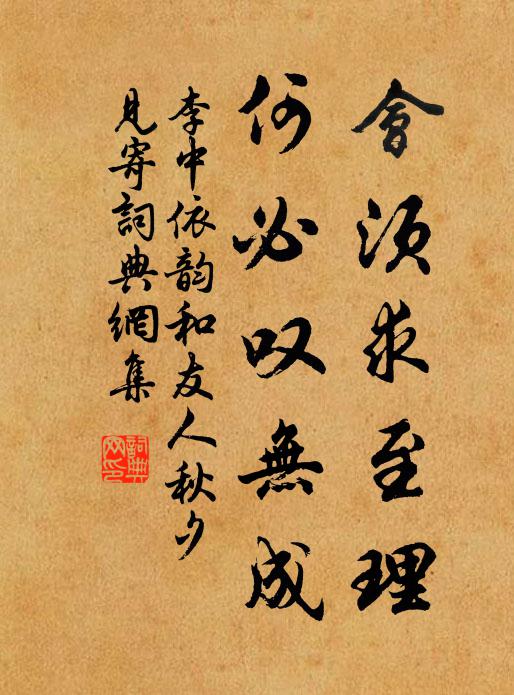 會須求至理
何必叹無成
李中依韵和友人秋夕
見寄詞典網集
詞典网印